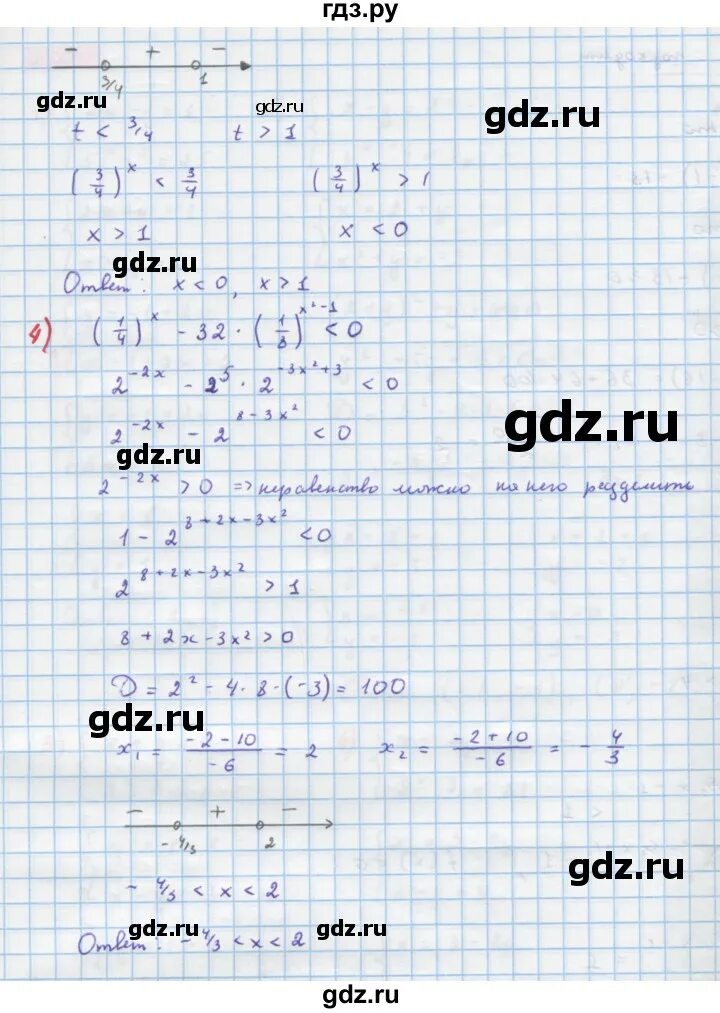 гдз.ру
- + -
3/4 1
gdz.ru gdz.ru gdz.ru
t < 3/4 t > 1
(3/4)^x < 3/4 (3/4)^x > 1
x > 1 x < 0
gdz.ru
Ответ: x < 0, x > 1
4) (1/4)^x - 32 · (1/8)^(x²-1) < 0
2^(-2x) - 2^5 · 2^(-3x²+3) < 0
gdz.ru
2^(-2x) - 2^(8-3x²) < 0
gdz.ru
2^(-2x) > 0 => неравенство можно на него разделить
1 - 2^(8+2x-3x²) < 0
2^(8+2x-3x²) > 1
8 + 2x - 3x² > 0
D = 2² - 4·8·(-3) = 100
gdz.ru gdz.ru
x₁ = (-2-10)/(-6) = 2 x₂ = (-2+10)/(-6) = -4/3
- + -
-4/3 2
gdz.ru
-4/3 < x < 2
gdz.ru gdz.ru
Ответ: -4/3 < x < 2
gdz.ru